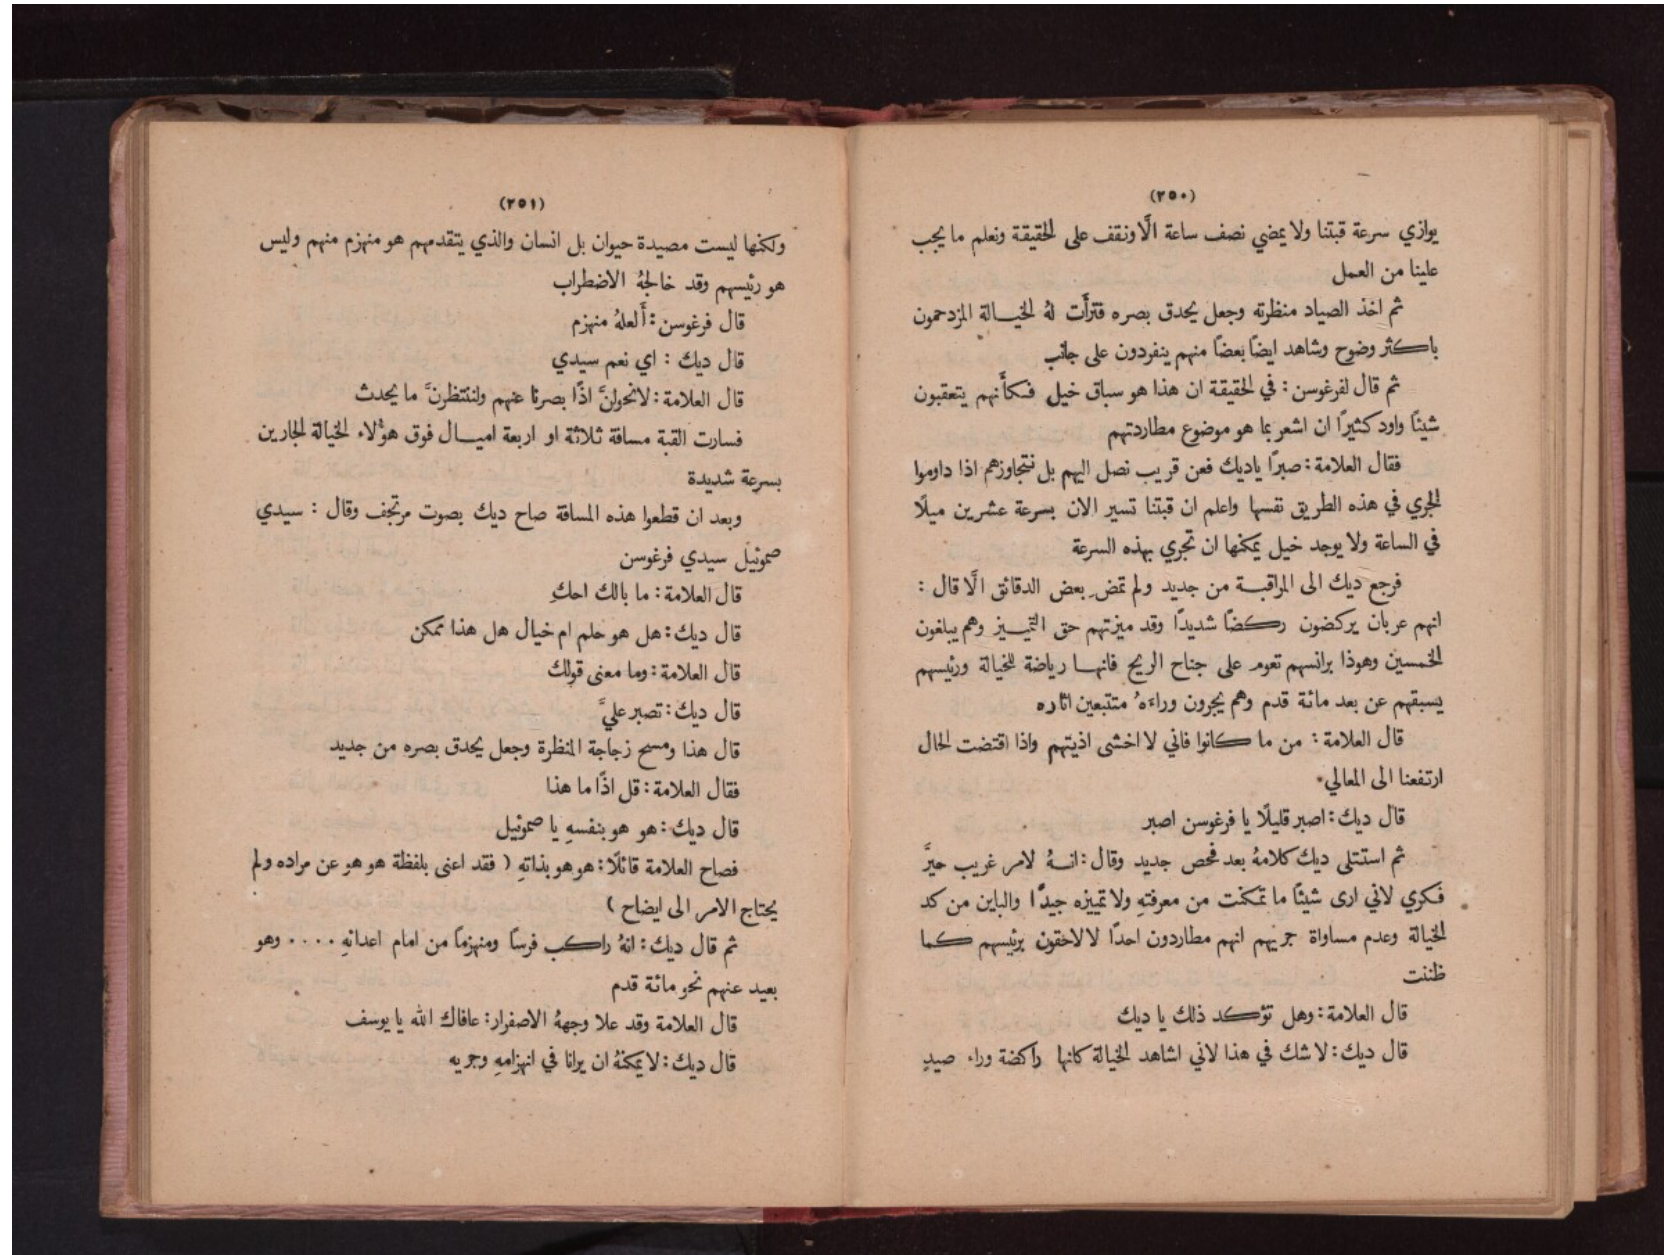 (٢٥٠)
يوازي سرعة قبتنا ولا يمضي نصف ساعة الَّا ونقف على الحقيقة ونعلم ما يجب
علينا من العمل
ثم اخذ الصياد منظرته وجعل يحدق بصره فترأَت لهُ الخيالة المزدحمون
باكثر وضوح وشاهد ايضاً بعضاً منهم ينفردون على جانب
ثم قال لفرغوسن : في الحقيقة ان هذا هو سباق خيل فكأَنهم يتعقبون
شيئاً واود كثيراً ان اشعر بما هو موضوع مطاردتهم
فقال العلامة : صبراً يا ديك فعن قريب نصل اليهم بل نتجاوزهم اذا داوموا
الجري في هذه الطريق نفسها واعلم ان قبتنا تسير الان بسرعة عشرين ميلاً
في الساعة ولا يوجد خيل يمكنها ان تجري بهذه السرعة
فرجع ديك الى المراقبة من جديد ولم تمضِ بعض الدقائق الَّا قال :
انهم عربان يركضون ركضاً شديداً وقد ميزتهم حق التمييز وهم يبلغون
الخمسين وهوذا برانسهم تعوم على جناح الريح فانها رياضة للخيالة ورئيسهم
يسبقهم عن بعد مائة قدم وهم يجرون وراءَهُ متتبعين اثاره
قال العلامة : من ما كانوا فاني لا اخشى اذيتهم واذا اقتضت الحال
ارتفعنا الى المعالي
قال ديك : اصبر قليلاً يا فرغوسن اصبر
ثم استتلى ديك كلامهُ بعد فحص جديد وقال : انهُ لامر غريب حيَّر
فكري لاني ارى شيئاً ما تمكنت من معرفتهِ ولا تمييزه جيداً والباين من كد
الخيالة وعدم مساواة جريهم انهم مطاردون احداً لا لاحقون برئيسهم كما
ظننت
قال العلامة : وهل تؤكد ذلك يا ديك
قال ديك : لا شك في هذا لاني اشاهد الخيالة كانها راكضة وراء صيدٍ
(٢٥١)
ولكنها ليست مصيدة حيوان بل انسان والذي يتقدمهم هو منهزم منهم وليس
هو رئيسهم وقد خالجهُ الاضطراب
قال فرغوسن : أَلعلهُ منهزم
قال ديك : اي نعم سيدي
قال العلامة : لا نحولنَّ اذًا بصرنا عنهم ولننتظرنَّ ما يحدث
فسارت القبة مسافة ثلاثة او اربعة اميال فوق هؤلاء الخيالة الجارين
بسرعة شديدة
وبعد ان قطعوا هذه المسافة صاح ديك بصوت مرتجف وقال : سيدي
صموئيل سيدي فرغوسن
قال العلامة : ما بالك احكِ
قال ديك : هل هو حلم ام خيال هل هذا ممكن
قال العلامة : وما معنى قولك
قال ديك : تصبر عليَّ
قال هذا ومسح زجاجة المنظرة وجعل يحدق بصره من جديد
فقال العلامة : قل اذًا ما هذا
قال ديك : هو هو بنفسهِ يا صموئيل
فصاح العلامة قائلاً : هو هو بذاتهِ ( فقد اعنى بلفظة هو هو عن مراده ولم
يحتاج الامر الى ايضاح )
ثم قال ديك : انهُ راكب فرساً ومنهزماً من امام اعدائهِ .... وهو
بعيد عنهم نحو مائة قدم
قال العلامة وقد علا وجههُ الاصفرار : عافاك الله يا يوسف
قال ديك : لا يمكنهُ ان يرانا في انهزامهِ وجريه